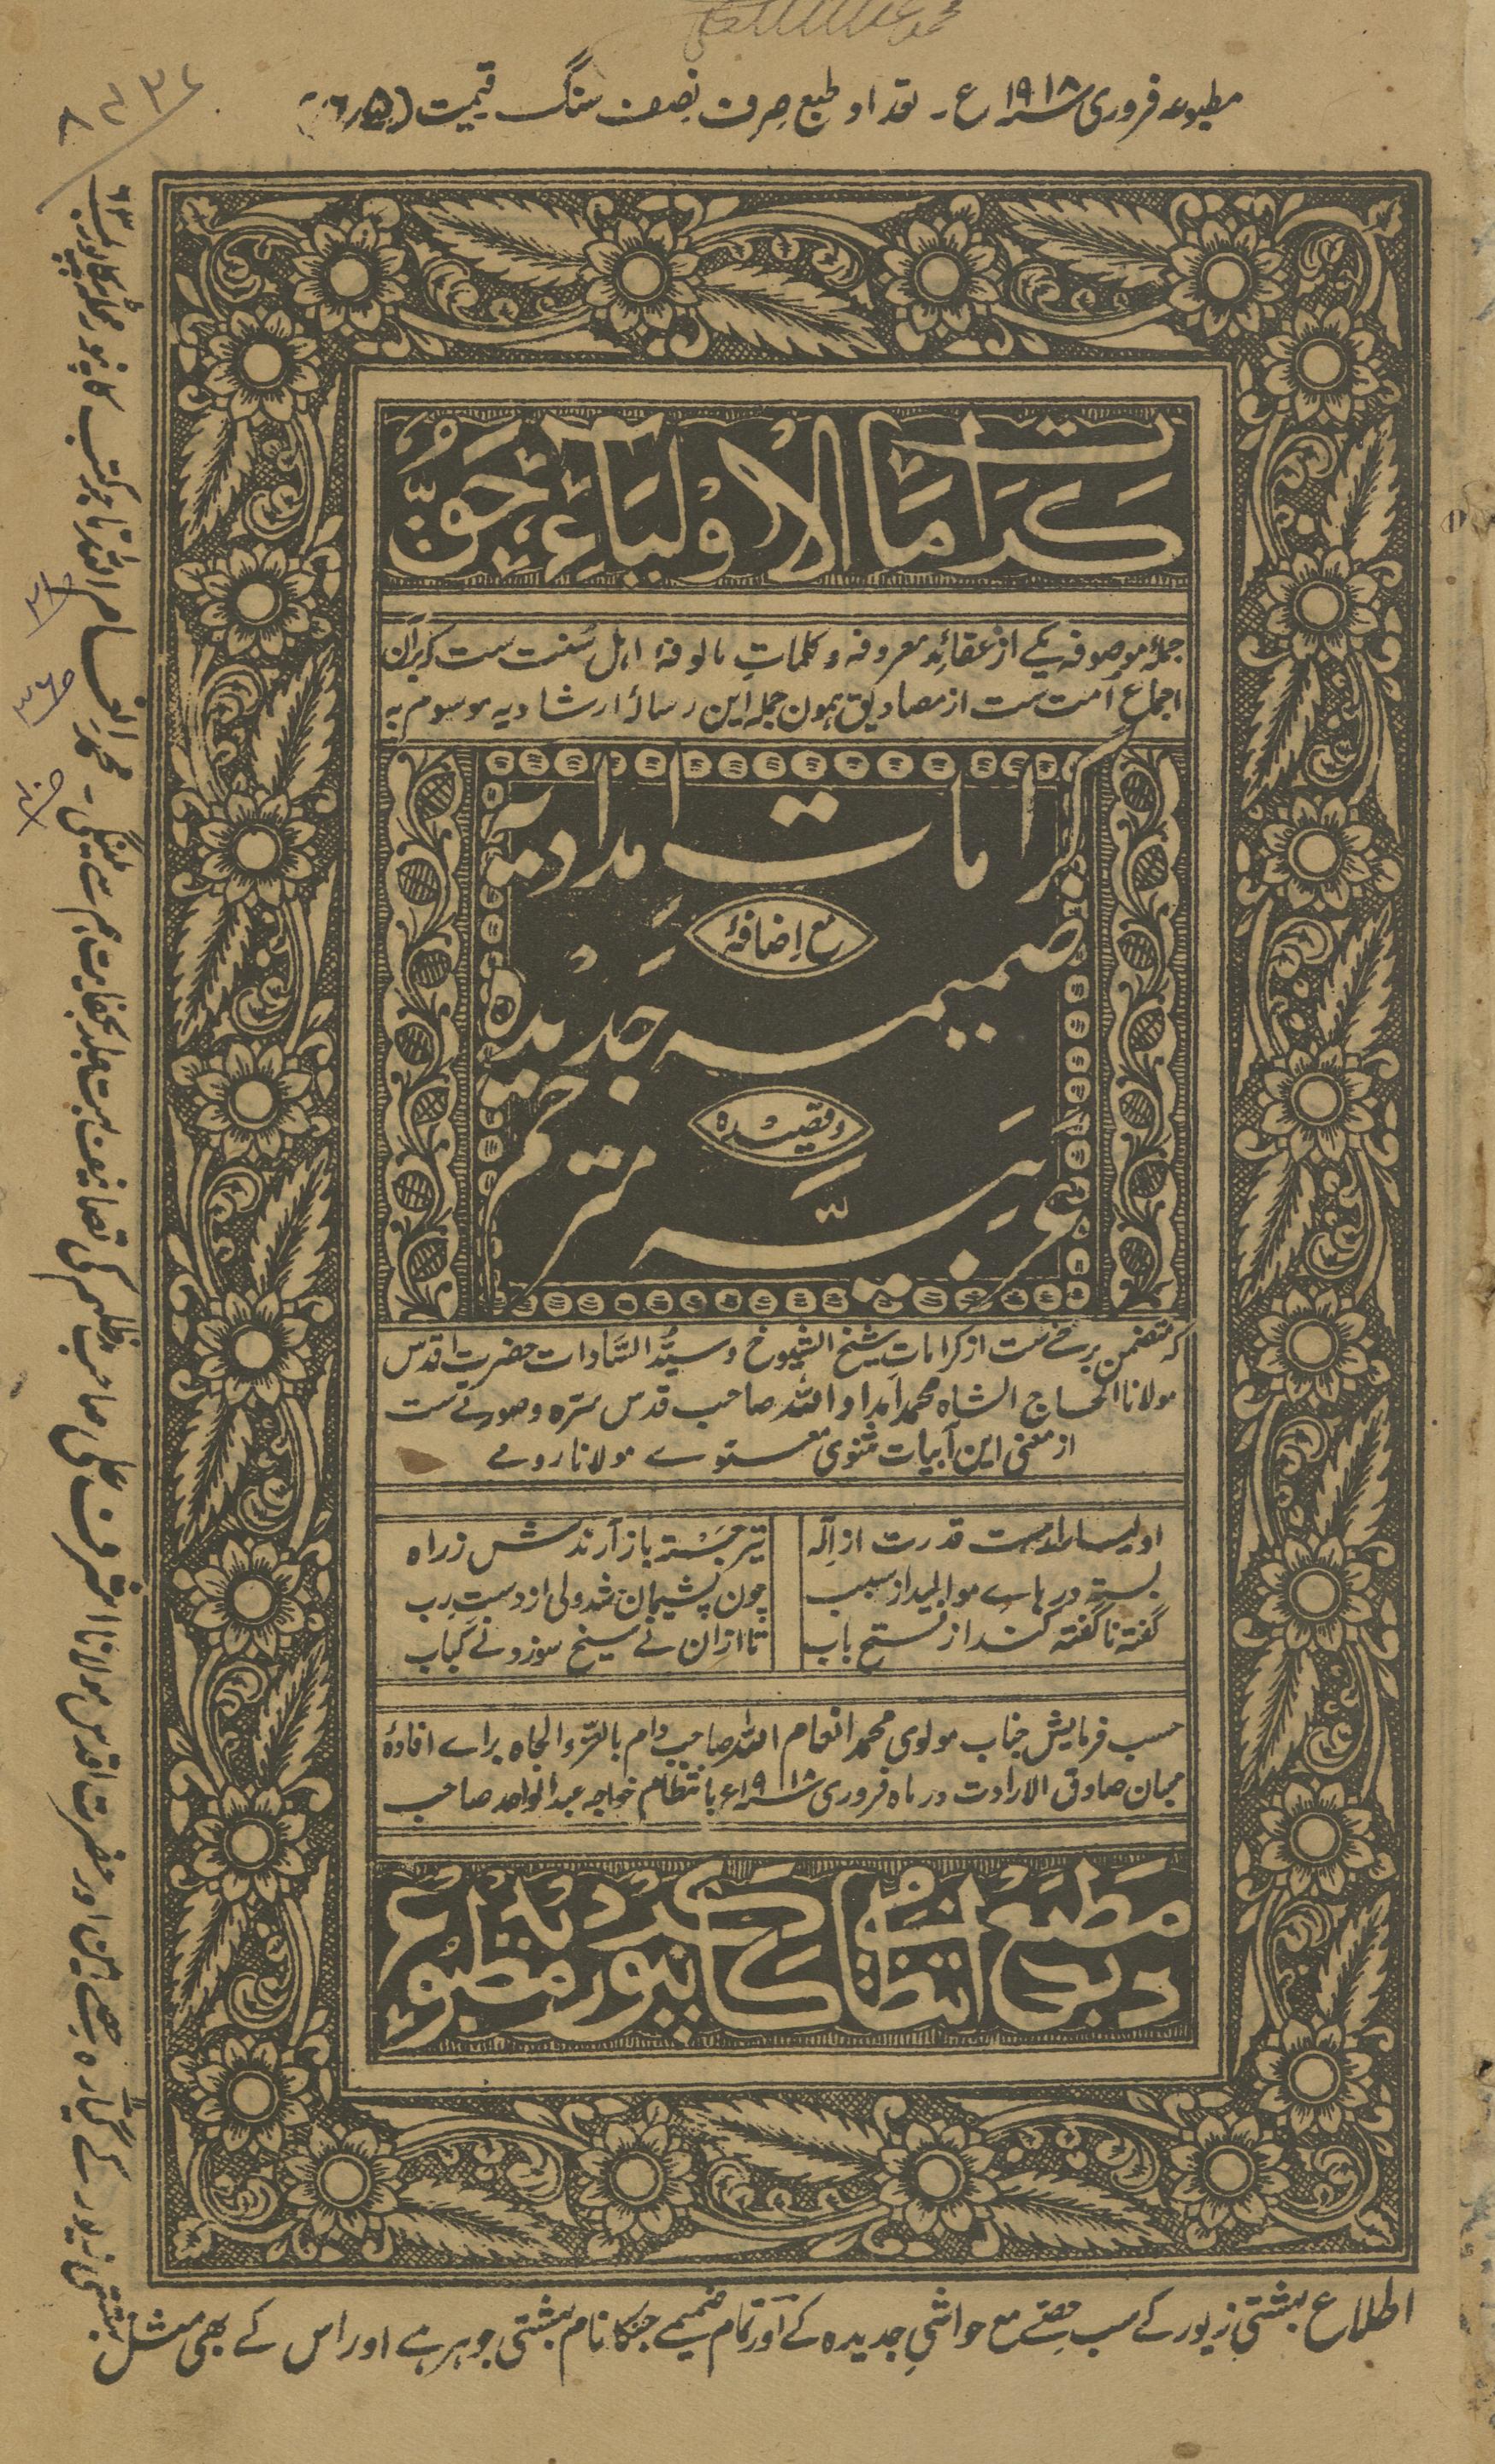 مطبوعہ فروری ۱۹۱۸ء۔ تعداد طبع صرف نصف سنگ قیمت
کرامات الاولیاء حق
جملۂ موصوفہ یکے از عقائد معروفہ و کلمات مالوفۂ اہل سنت ست کہ بر آن
اجماع امت ست از مصادیق ہمون جملہ این رسالۂ ارشادیہ موسوم بہ
کرامات امدادیہ
مع اضافۂ
ضمیمہ جدیدہ
و قصیدہ
عربیہ مترجم
کہ متضمن برخے ست از کرامات شیخ الشیوخ و سید السادات حضرت اقدس
مولانا الحاج الشاہ محمد امداد اللہ صاحب قدس سرہ و صورتے ست
از معنی این ابیات مثنوی معنوے مولانا رومے
اولیا را ہست قدرت از الٰہ تیر جستہ باز آرندش ز راہ
بستہ در ہاے موالید از سبب چون پشیمان شد ولی از دست رب
گفتہ ناگفتہ کند از فتح باب تا ازان نے سیخ سوزد نے کباب
حسب فرمایش جناب مولوی محمد انعام اللہ صاحب دام بالعز والجاہ براے افادۂ
محبان صادق الارادت در ماہ فروری ۱۹۱۸ء بانتظام خواجہ عبدالواحد صاحب
مطبع انتظامی کانپور
مطبوع گردید
اطلاع بہشتی زیور کے سب حصے مع حواشی جدیدہ کے اور تمام ضمیمے جنکا نام بہشتی جوہر ہے اور اس کے بھی مثل بہشتی
زیور کے گیارہ حصے ہین اور حضرت اقدس مولانا اشرف علی صاحب مدظلہم کی تصانیف بہت جلد بکفایت ہم سے ملینگی۔